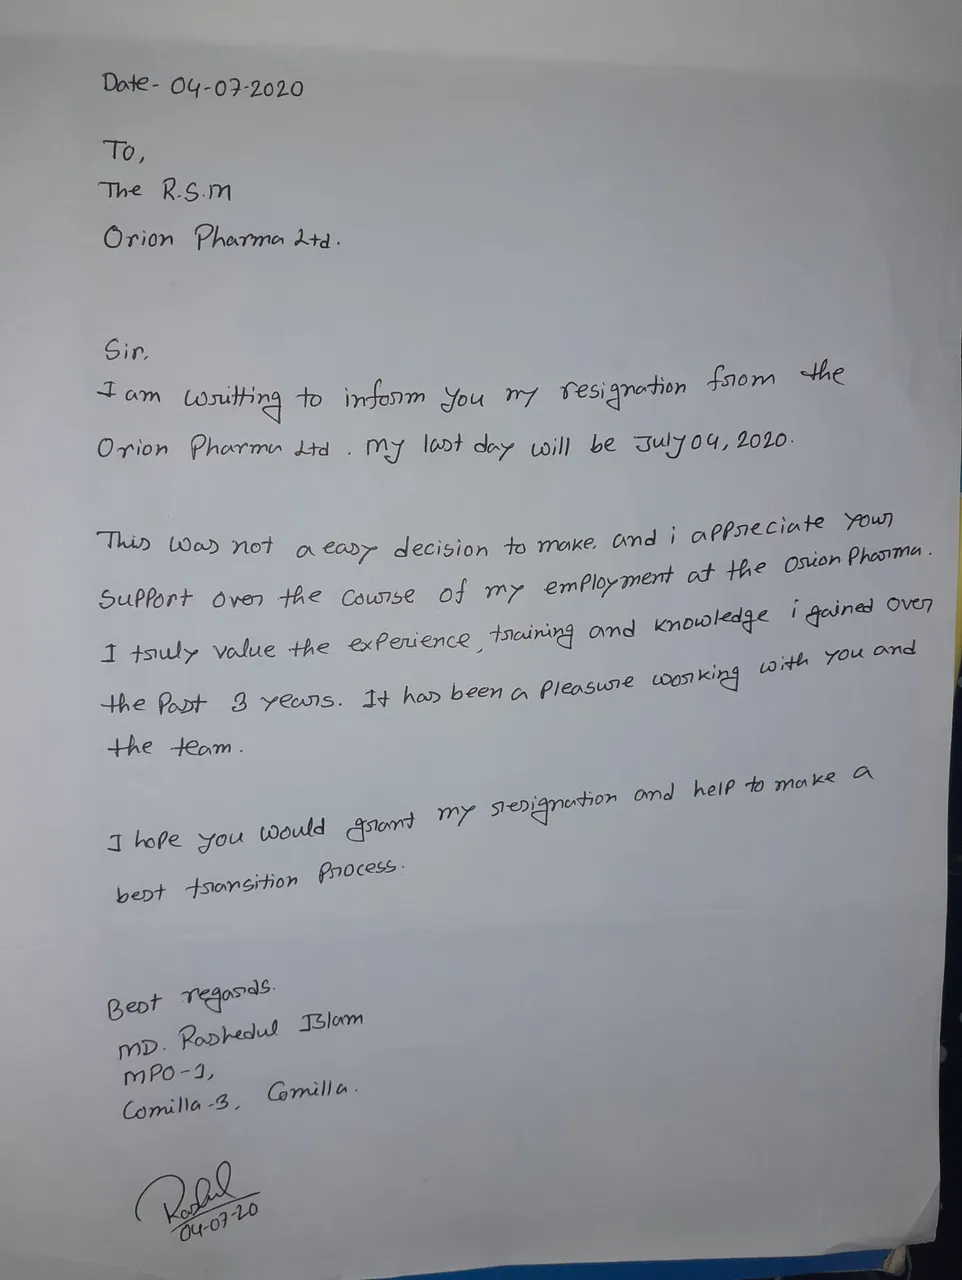 Date- 04-07-2020
To,
The R.S.M
Orion Pharma Ltd.
Sir,
I am writting to inform you my resignation from the
Orion Pharma Ltd. My last day will be July 04, 2020.
This was not a easy decision to make. and i appreciate your
support over the course of my employment at the Orion Pharma.
I truly value the experience, training and knowledge i gained over
the past 3 years. It has been a pleasure working with you and
the team.
I hope you would grant my resignation and help to make a
best transition process.
Best regards.
MD. Rashedul Islam
MPO-1,
Comilla-3, Comilla.
Rashed
04-07-20